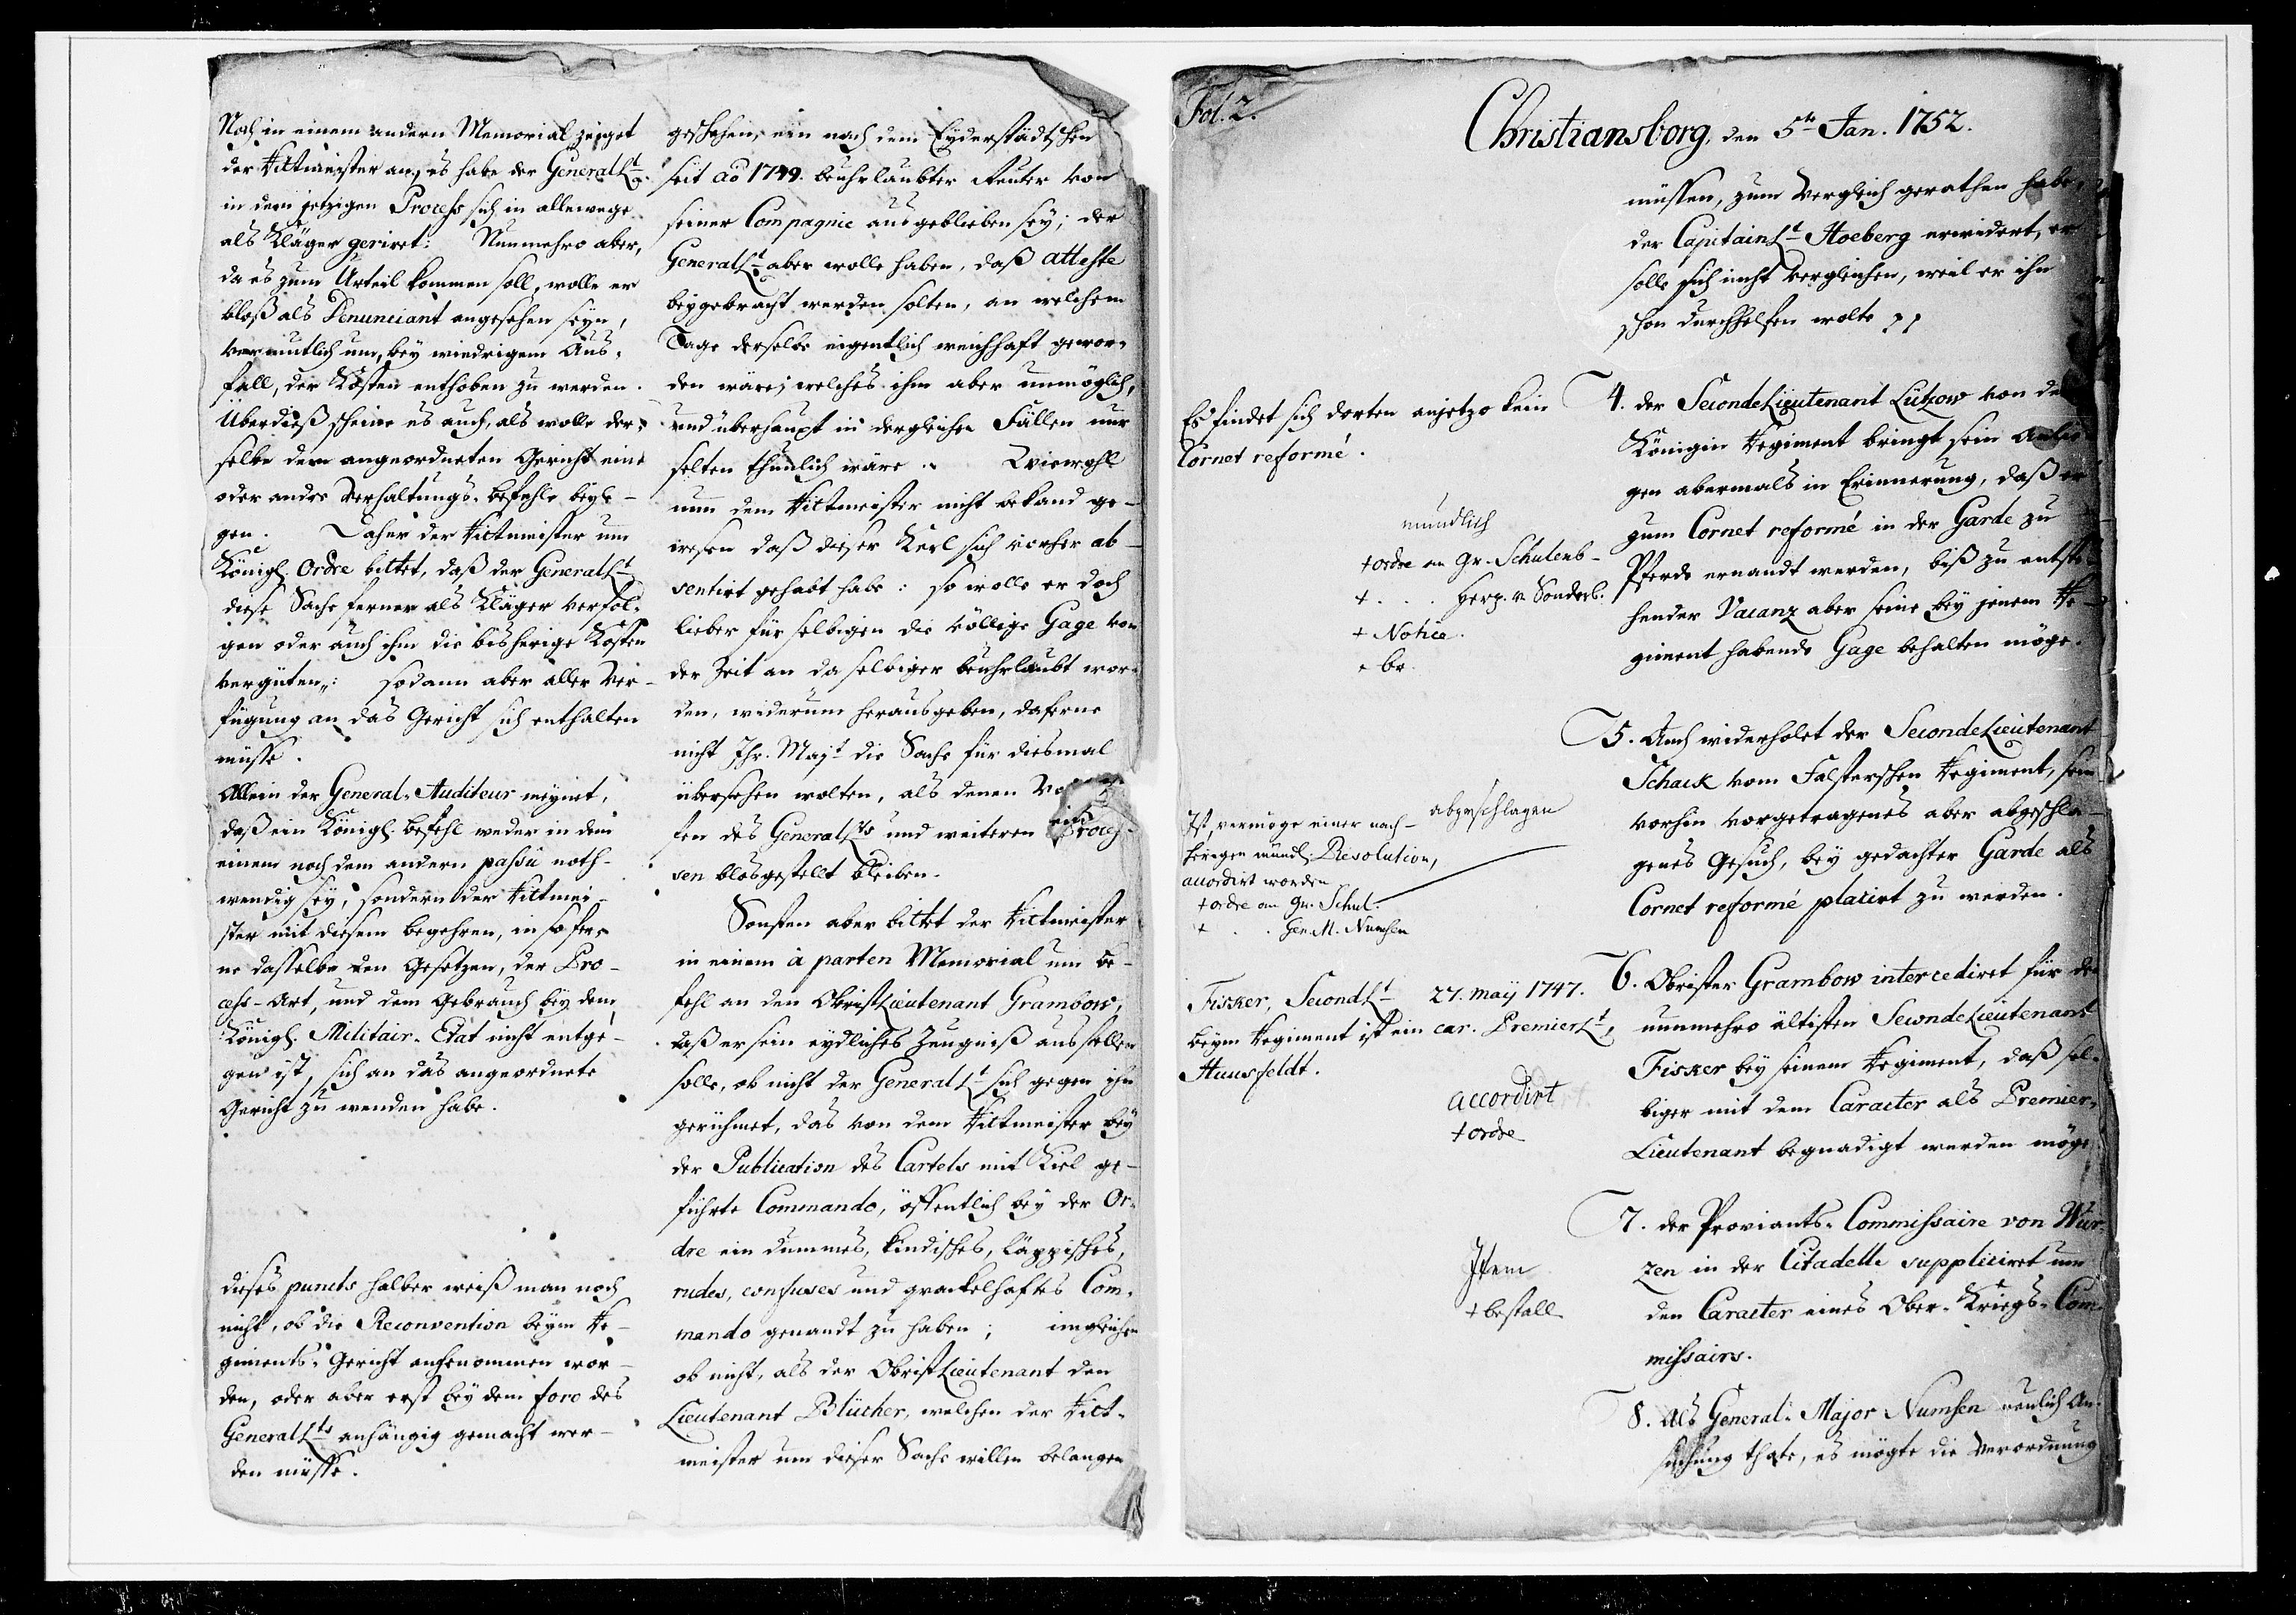 Noch in einem andern Memorial zeiget
der Rittmeister an, es habe der GeneralLt
in dem jetzigen Process sich in allewege
als Kläger geriret: Nunmehro aber,
da es zum Urteil kommen soll, wolle er
bloß als Denunciant angesehen seyn,
vermutlich um, bey wiedrigem Aus-
fall, der Kosten enthoben zu werden.
Überdieß scheine es auch, als wolle der-
selbe dem angeordneten Gericht eine
oder andre Verhaltungs-befehle beyle-
gen. Daher der Rittmeister um
Königl. Ordre bittet, daß der GeneralLt
diese Sache ferner als Kläger verfol-
gen oder auch ihm die bisherige Kosten
vergüten: sodann aber aller Ver-
fügung an das Gericht sich enthalten
müsse.
Allein der General-Auditeur meynet,
daß ein Königl. befehl weder in dem
einem noch dem andern passu noth-
wendig sey, sondern der Rittmei-
ster mit diesem begehren, in so fer-
ne dasselbe den Gesetzen, der Pro-
cess-Art, und dem Gebrauch bey dem
Königl. Militair-Etat nicht entge-
gen ist, sich an das angeordnete
Gericht zu wenden habe.
dieses puncts halber weiß man noch
nicht, ob die Reconvention beym Re-
giments-Gericht angenommen wor-
den, oder aber erst bey dem foro des
GeneralLts anhängig gemacht wer-
den müsse.
geschehen, ein nach dem Eyderstädtschen
seit ao 1749. beuhrlaubter Reuter von
seiner Compagnie ausgeblieben sey; der
GeneralLt aber wolle haben, daß atteste
beygebracht werden solten, an welchem
Tage derselbe eigentlich weichhaft gewor-
den wäre; welches ihm aber unmöglich,
und überhaupt in dergleichen Fällen nur
selten thunlich wäre. Wiewohl
nun dem Rittmeister nicht bekand ge-
wesen daß dieser Kerl sich vorher ab-
sentirt gehabt habe: so wolle er doch
lieber für selbigen die völlige Gage von
der Zeit an da selbiger beuhrlaubt wor-
den, widerum herausgeben, daferne
nicht Ihr. Majt die Sache für diesmal
übersehen wolten, als denen
ten des GeneralLts und weiteren Proces-
sen blosgestellt bleiben.
Sonsten aber bittet der Rittmeister
in einem à parten Memorial um be-
fehl an den ObristLieutenant Grambow,
daß er sein eydliches Zeugniß ausstellen
solle, ob nicht der GeneralLt sich gegen ihn
gerühmet, das von dem Rittmeister bey
der Publication des Cartels mit Kiel ge-
führte Commando, öffentlich bey der Or-
dre ein dummes, kindisches, läppisches,
rudes, confuses und grackelhaftes Com-
mando genandt zu haben; imgleichen
ob nicht, als der ObristLieutenant den
Lieutenant Blücher, welchen der Ritt-
meister um dieser Sache willen belangen
Fol. 2.
Christiansborg, den 5tn Jan. 1752.
müssen, zum Vergleich gerathen habe,
der CapitainLt Hoeberg erwidert, er
solle sich nicht vergleichen, weil er ihn
schon durchhelfen wolte
Es findet sich dorten anjetzo kein
Cornet reformé.
mündlich
+ ordre an Gr. Schulenb-
+ . . . Herz. v. Sonderb.
+ Notice.
+ br.
4. der SecondeLieutenant Lützow von der
Königin Regiment bringt sein Anlie-
gen abermals in Erinnerung, daß er
zum Cornet reformé in der Garde zu
Pferde ernandt werden, biß zu entste-
hender Vacanz aber seine bey jenem Re-
giment habende Gage behalten möge.
Ist, vermöge einer nach-
herigen mündl. Resolution,
accordirt worden
+ ordre an Gr. Schul.
+ . . Gen. M. Numsen
abgeschlagen
5. Auch widerholet der SecondeLieutenant
Schack vom Falsterschen Regiment, sein
vorhin vorgetragenes aber abgeschla-
genes Gesuch, bey gedachter Garde als
Cornet reformé placirt zu werden.
Fisker, SecondLt 27. maij 1747.
beym Regiment ist ein car. PremierLt,
Huusfeldt.
accordirt
+ ordre
6. Obrister Grambow intercediret für den
nunmehro ältisten SecondeLieutenant
Fisker bey seinem Regiment, daß sel-
biger mit dem Caracter als Premier-
Lieutenant begnadigt werden möge.
Item
+ bestall
7. der Proviants-Commissaire von Wür-
zen in der Citadelle suppliciret um
den Caracter eines Ober-Kriegs-Com-
missairs.
8. Als General-Major Numsen neulich An-
suchung thate, es mögte die Verordnung